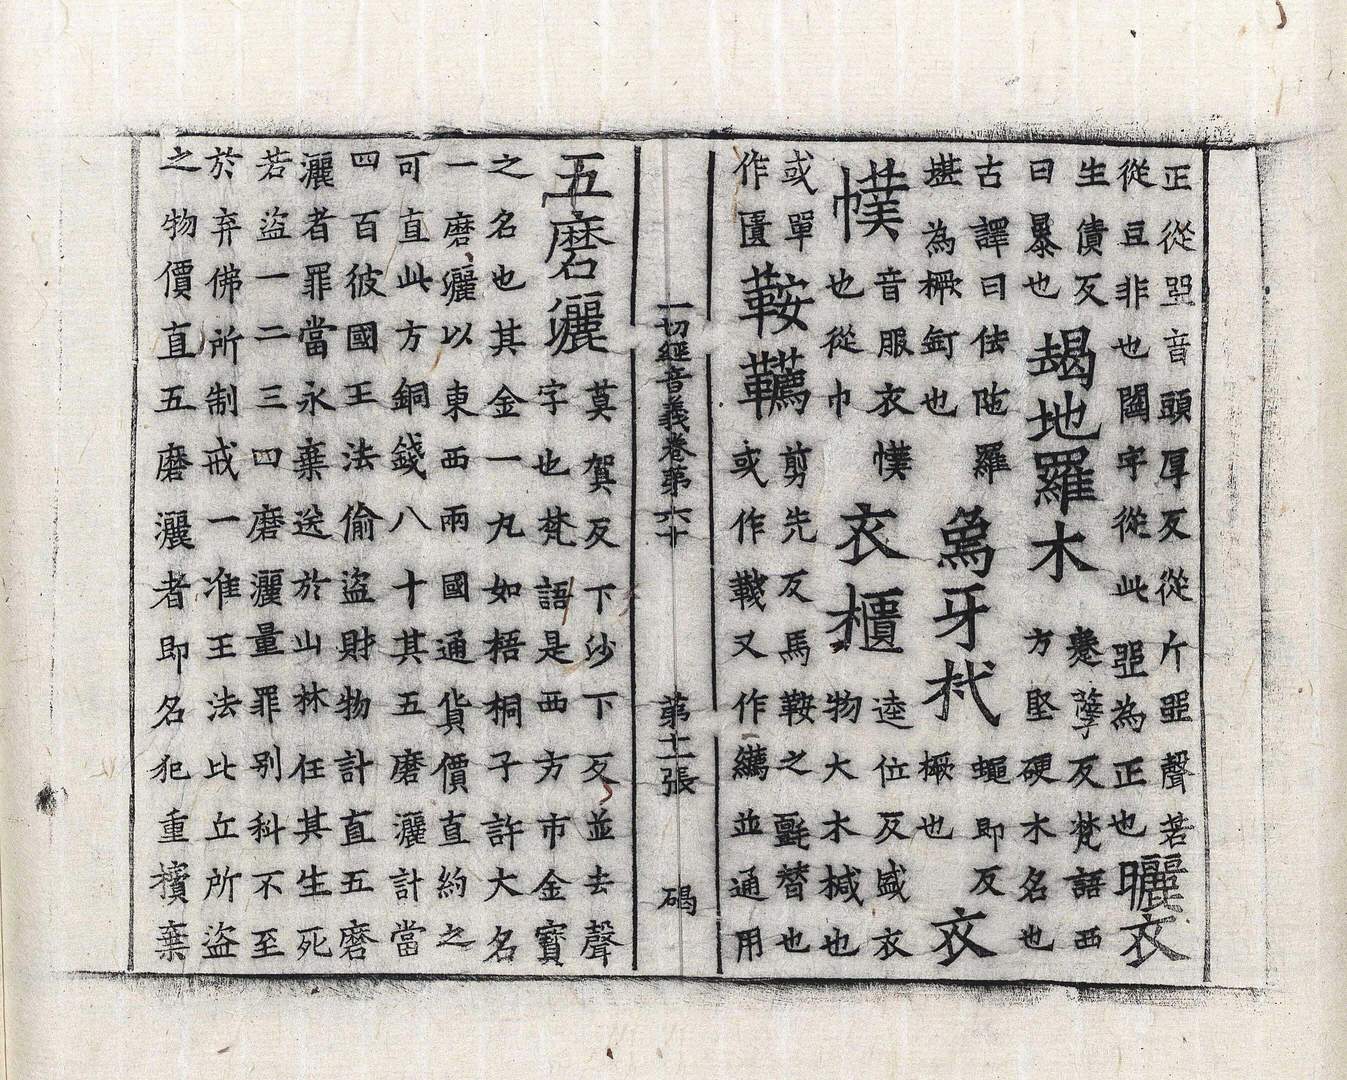 正從音頭厚反從斤聲若
從豆非也鬪字從此為正也
曬衣
生債反
曰暴也
朅地羅木
蹇孽反梵語西
方堅硬木名也
古譯曰佉陁羅
堪為橛釘也
象牙杙
蠅即反
橛也
衣
幞
音服衣幞
也從巾
衣櫃
逵位反盛衣
物大木椷也
或單
作匱
鞍韉
剪先反馬鞍之氈替也
或作韀又作並通用
一切經音義卷第六十 第十一張 碣
五磨灑
莫賀反下沙下反並去聲
字也梵語是西方市金寶
之名也其金一丸如梧桐子許大名
一磨灑以東西兩國通貨價直約之
可直此方銅錢八十其五磨灑計當
四百彼國王法偷盜財物計直五磨
灑者罪當永棄送於山林任其生死
若盜一二三四磨灑量罪別科不至
於弃佛所制戒一准王法比丘所盜
之物價直五磨灑者即名犯重擯棄